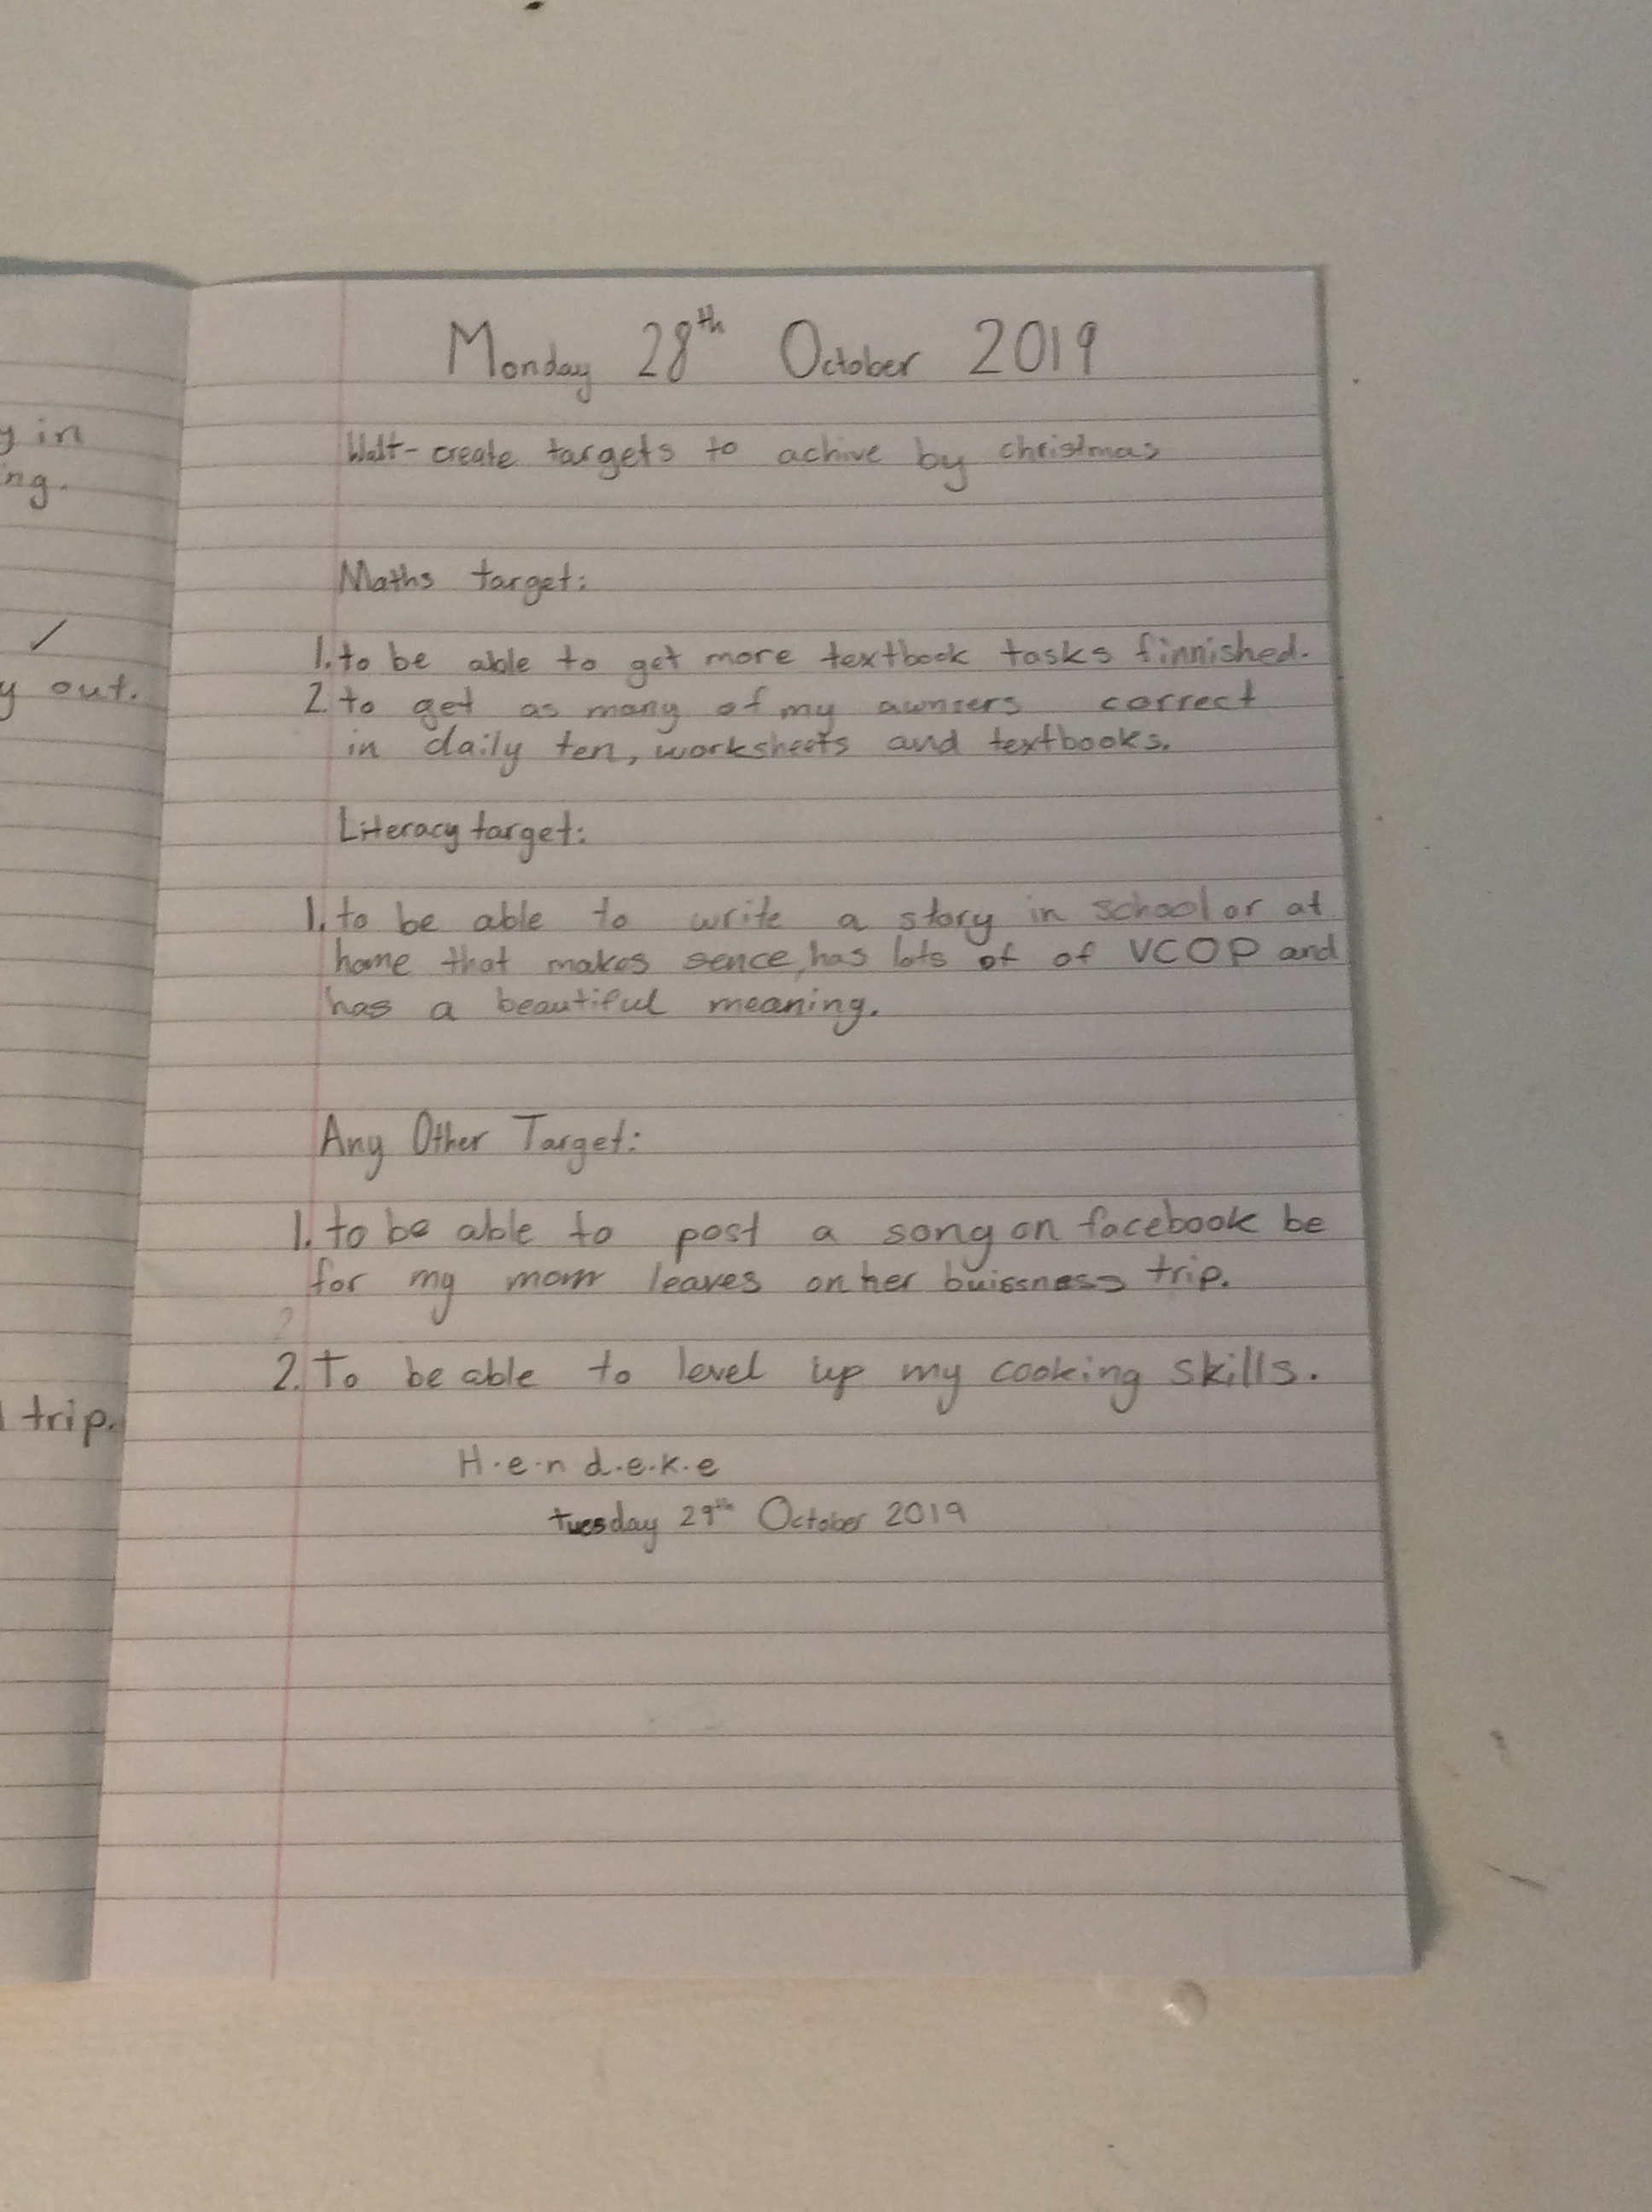 y in
ng.
y out.
trip.
Monday 28th October 2019
Walt- create targets to achive by christmas
Maths target:
1. to be able to get more textbook tasks finnished.
2. to get as many of my awnsers correct
in daily ten, worksheets and textbooks.
Literacy target:
1. to be able to write a story in school or at
home that makes sence, has lots of of VCOP and
has a beautiful meaning.
Any Other Target:
1. to be able to post a song on facebook be
for my mom leaves on her buissness trip.
2. To be able to level up my cooking skills.
H.e.n d.e.k.e
tuesday 29th October 2019